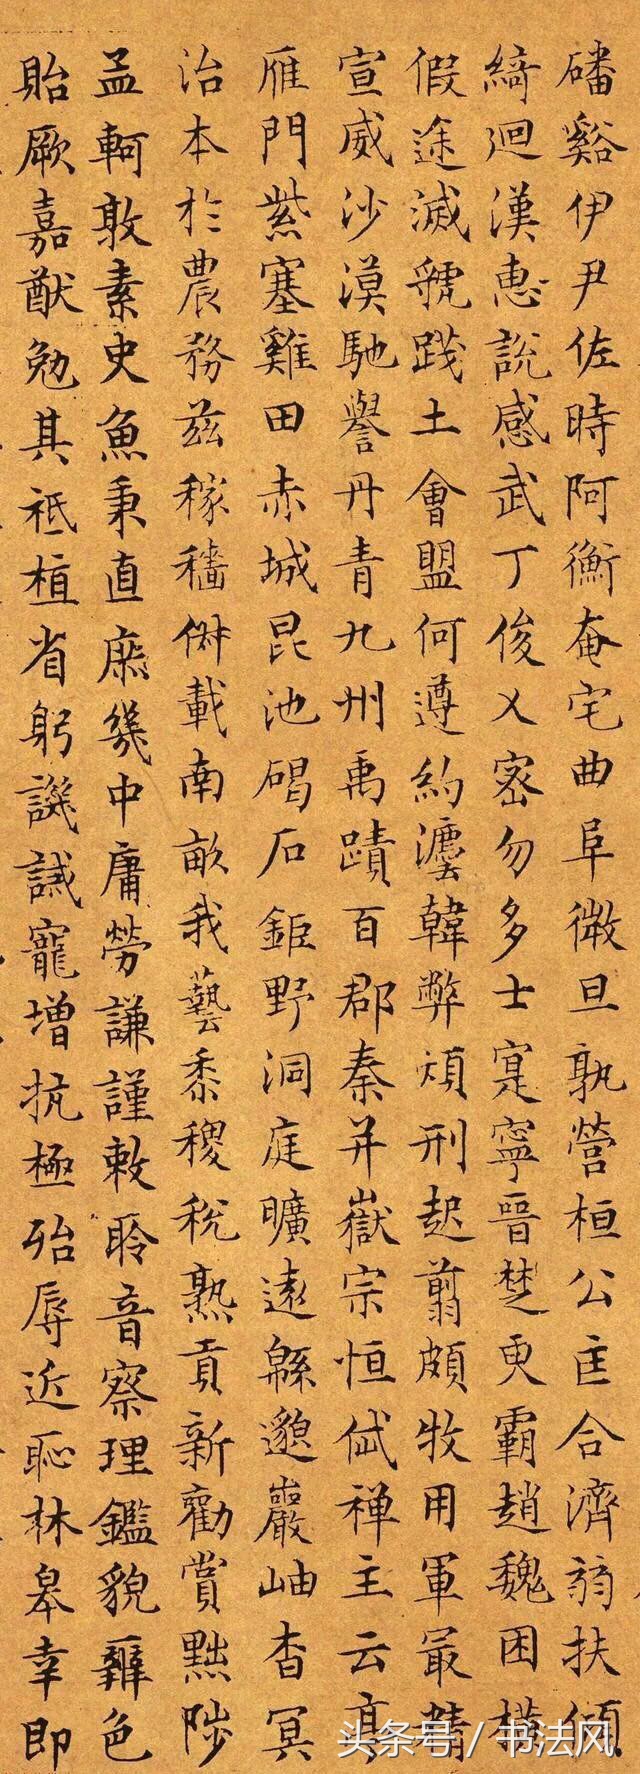 磻谿伊尹佐時阿衡奄宅曲阜微旦孰營桓公匡合濟弱扶傾
綺迴漢惠說感武丁俊乂密勿多士寔寧晉楚更霸趙魏困橫
假途滅虢踐土會盟何遵約灋韓弊煩刑起翦頗牧用軍最精
宣威沙漠馳譽丹青九州禹蹟百郡秦并嶽宗恒岱禪主云亭
雁門紫塞雞田赤城昆池碣石鉅野洞庭曠遠緜邈巖岫杳冥
治本於農務茲稼穡俶載南畝我藝黍稷稅熟貢新勸賞黜陟
孟軻敦素史魚秉直庶幾中庸勞謙謹敕聆音察理鑑貌辯色
貽厥嘉猷勉其祗植省躬譏誡寵增抗極殆辱近恥林皋幸即
头条号 / 书法风